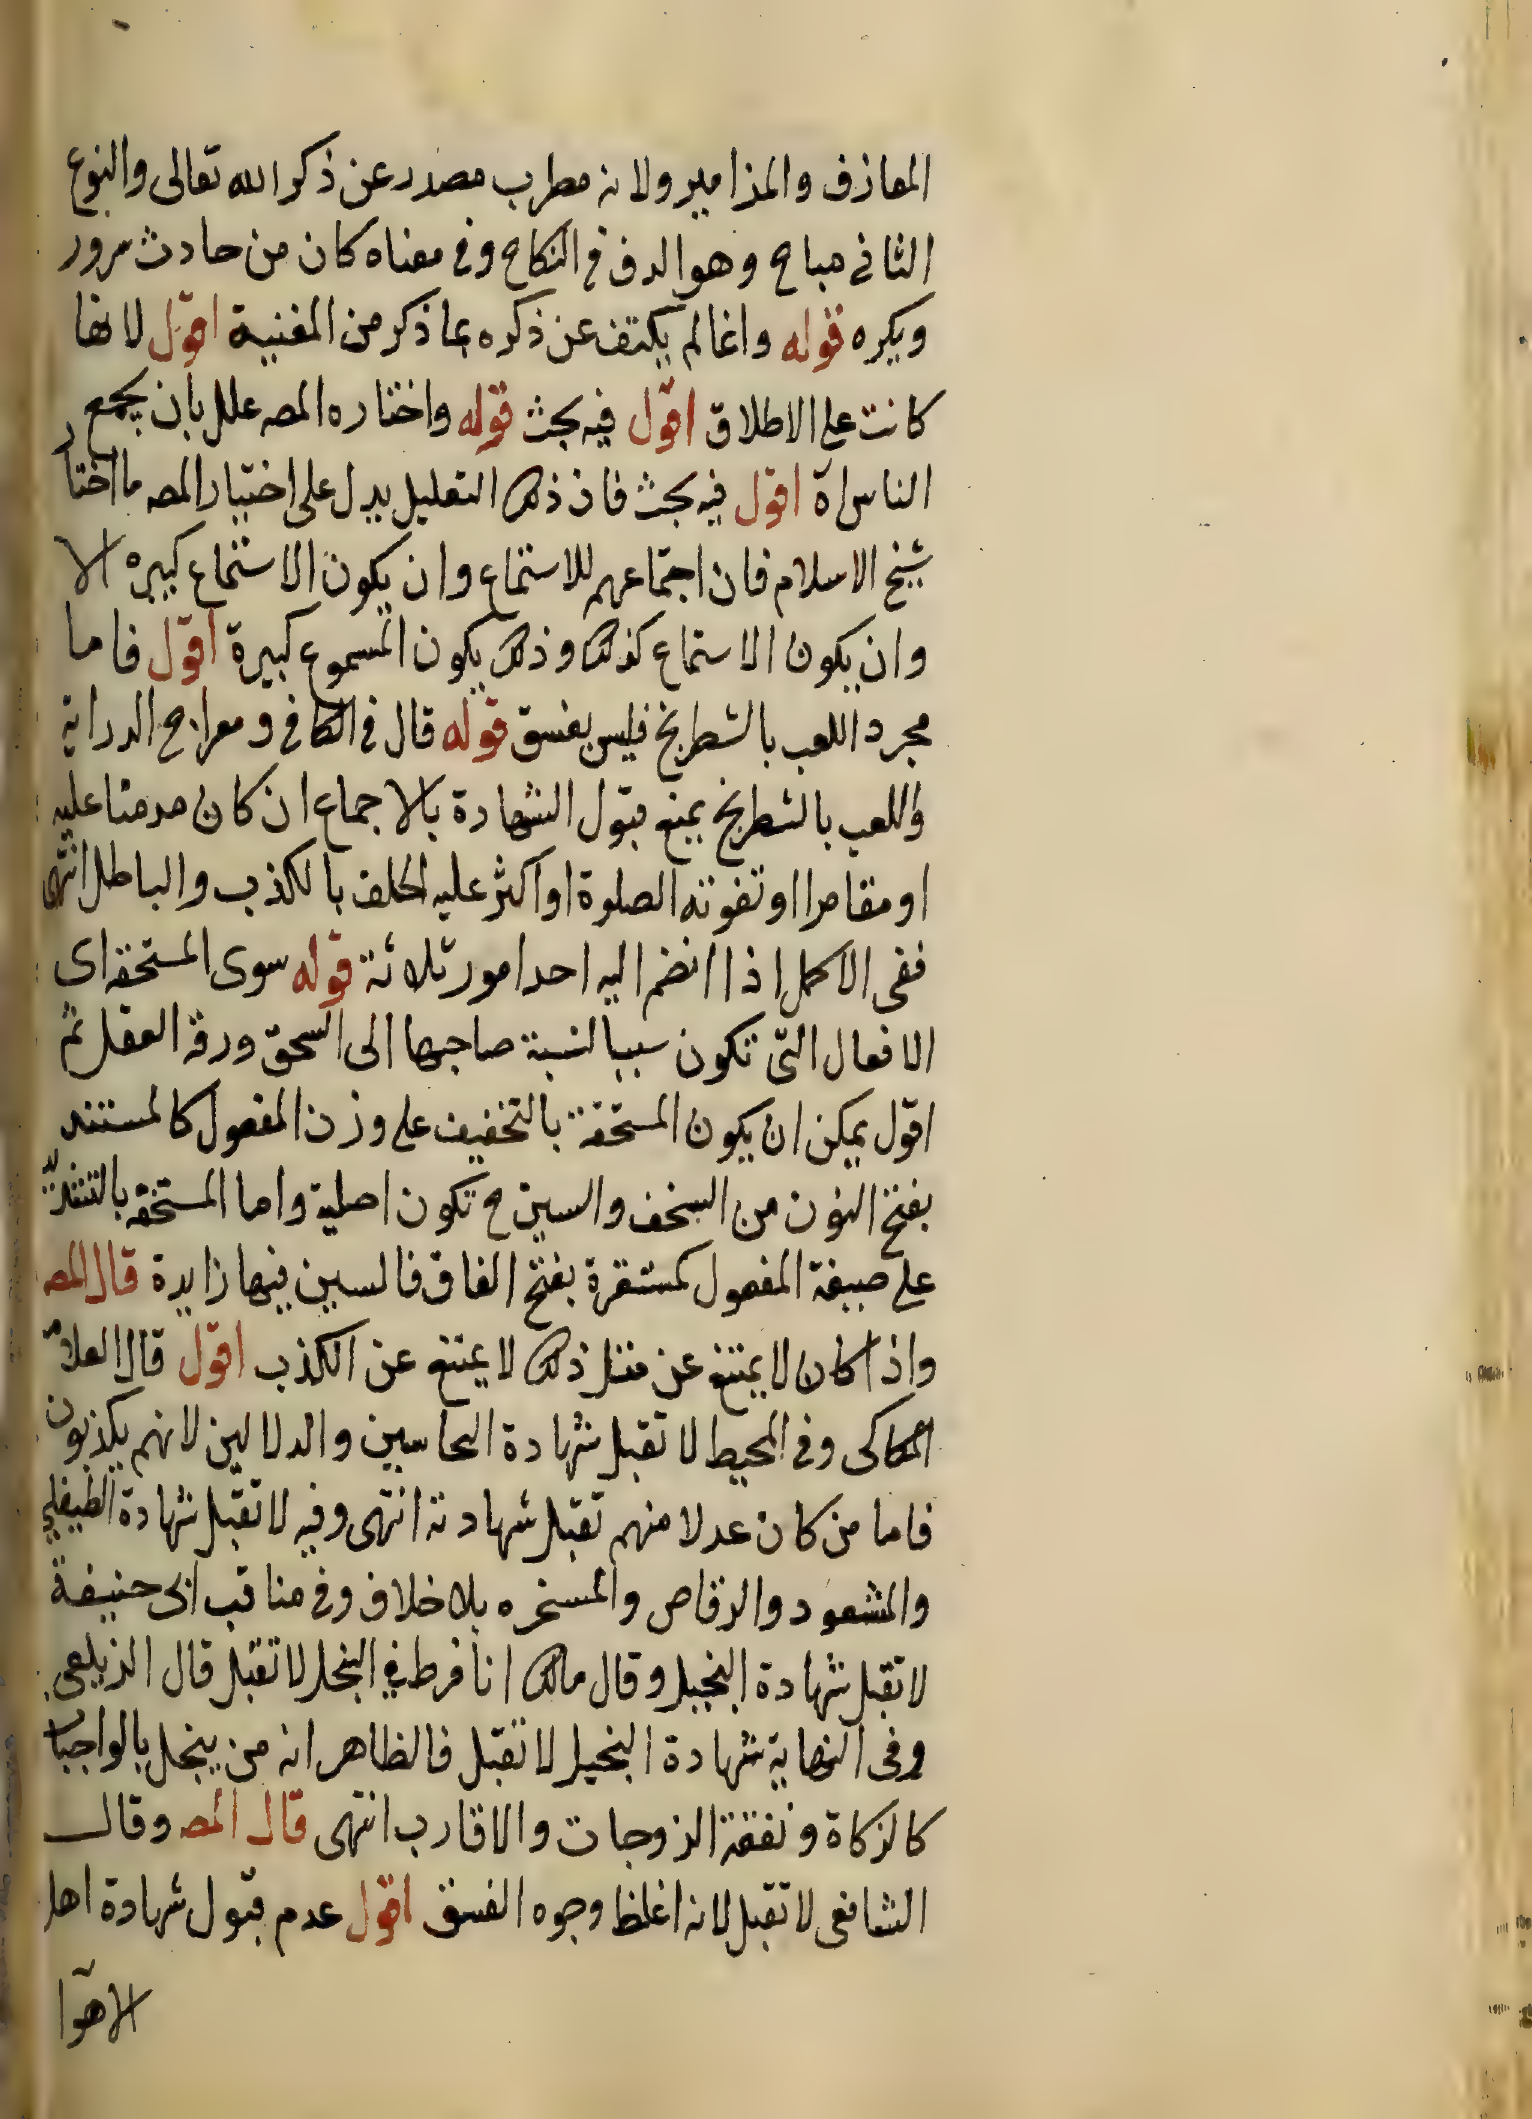 المعازف والمزامير ولانه مطرب مصدر عن ذكر الله تعالى والنوع
الثانى مباح وهو الدف فى النكاح وفى معناه كان من حادث سرور
ويكره قوله وانما لم يكتف عن ذكره بما ذكر من المغنية اقول لانها
كانت على الاطلاق اقول فيه بحث قوله واختاره المص علل بان يجمع
الناس اه اقول فيه بحث فان ذلك التعليل يدل على اختيار المص ما اختار
شيخ الاسلام فان اجتماعهم للاستماع وان يكون الاستماع كبيره الا
وان يكون الاستماع كذلك وذلك يكون المسموع كبيرة اقول فاما
مجرد اللعب بالشطرنج فليس بفسق قوله قال فى الكافى ومعراج الدراية
واللعب بالشطرنج يمنع قبول الشهادة بالاجماع ان كان مدمنا عليه
او مقامرا او تفوته الصلوة او اكثر عليه الحلف بالكذب والباطل انتهى
ففى الاكمل اذا انضم اليه احد امور ثلاثة قوله سوى المستحقه اى
الافعال التى تكون سببا لنسبة صاحبها الى السحق ورقة العقل ثم
اقول يمكن ان يكون المستحقة بالتخفيف على وزن المفعول كالمستند
بفتح النون من السخف والسين ح تكون اصلية واما المستخفه بالتشديد
على صيغة المفعول كمستقرة بفتح القاف فالسين فيها زايدة قال المص
واذا كان لا يمتنع عن مثل ذلك لا يمتنع عن الكذب اقول قال العلامة
الكاكى وفى المحيط لا تقبل شهادة النحاسين والدلالين لانهم يكذبون
فاما من كان عدلا منهم تقبل شهادته انتهى وفيه لا تقبل شهادة الطيفلى
والمشعود والرقاص والمسخره بلا خلاف وفى مناقب ابى حنيفة
لا تقبل شهادة البخيل وقال مالك ان افرط فى البخل لا تقبل قال الزيلعى
وفى النهاية شهادة البخيل لا تقبل فالظاهر انه من يبخل بالواجبات
كالزكاة ونفقة الزوجات والاقارب انتهى قال المص وقال
الشافعى لا تقبل لانه اغلظ وجوه الفسق اقول عدم قبول شهادة اهل
الاهوآ